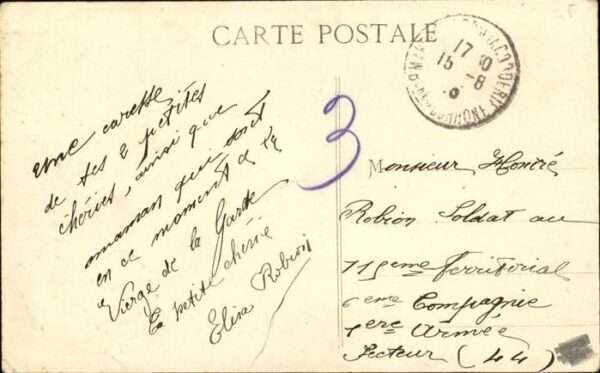 CARTE POSTALE
17 30
15 -8
une caresse
de tes 2 petites
chéries, ainsi que
maman qui doit
en ce moment à la
Vierge de la Garde
La petite chérie
Elisa Robion
3
Monsieur
Robion Soldat au
115eme Territorial
6eme Compagnie
1ere Armée
Secteur (44)